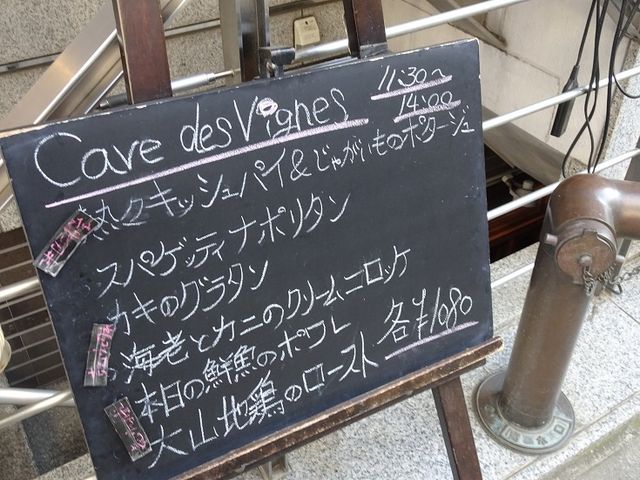 Cave des Vignes
11:30～
14:00
熱々キッシュパイ&じゃがいものポタージュ
スパゲッティナポリタン
カキのグラタン
海老とカニのクリームコロッケ
本日の鮮魚のポワレ
大山地鶏のロースト
各¥1080